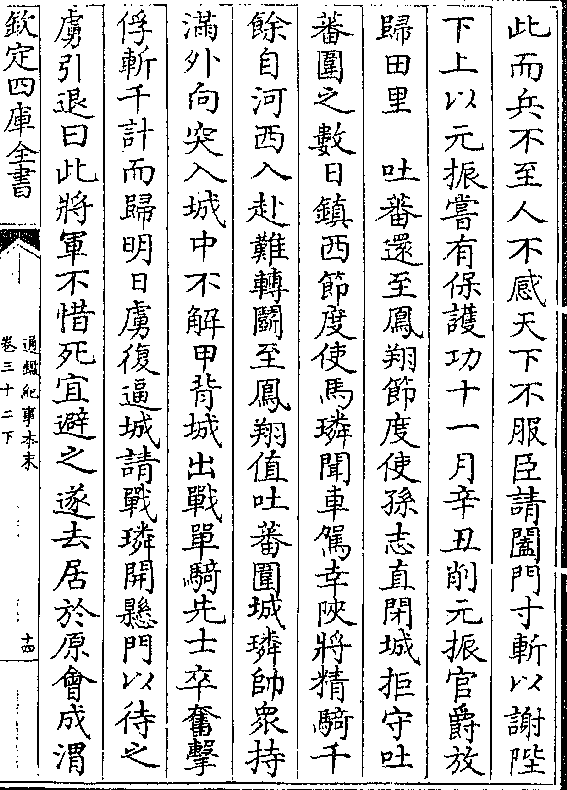 此而兵不至人不感天下不服臣請闔門寸斬以謝陛
下上以元振嘗有保護功十一月辛丑削元振官爵放
歸田里　吐蕃還至鳳翔節度使孫志直閉城拒守吐
蕃圍之數日鎮西節度使馬璘聞車駕幸陜將精騎千
餘自河西入赴難轉鬭至鳳翔值吐蕃圍城璘帥衆持
滿外向突入城中不解甲背城出戰單騎先士卒奮擊
俘斬千計而歸明日虜復逼城請戰璘開懸門以待之
虜引退曰此將軍不惜死宜避之遂去居於原會成渭
欽定四庫全書
通鑑紀事本末
卷三十二下
十四